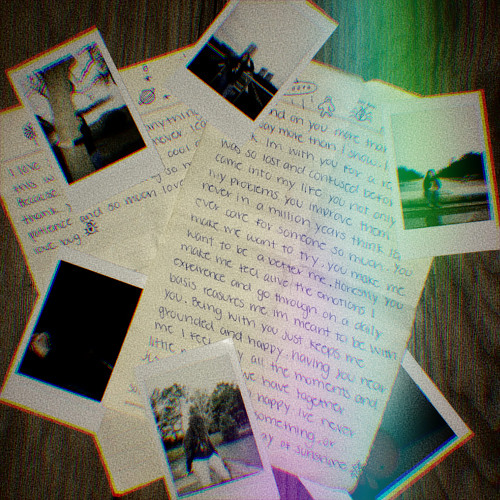 I love
this w
Because
thank
patience and so moon love
love bug
anything
never
cool
and on you more that
say more than I show. I
I'm with you for a re
was so lost and confused befor
came into my life. you not only
my problems you improve them.
never in a million years think I'd
ever care for someone so much. You
make me want to try. you make me
want to be a better me. Honestly you
make me feel alive the emotions I
experience and go through on a daily
basis reasures me im meant to be with
you. Being with you just keeps me
grounded and happy. having you near
me I feel
little
all the moments and
we have together
happy ive never
something or
ay of sunshine